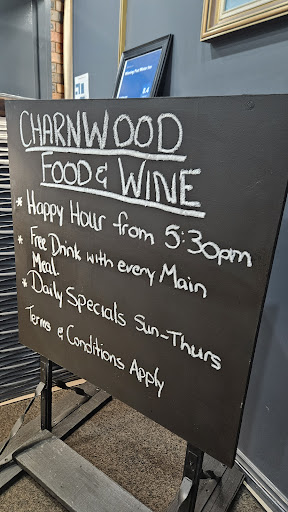 8.4
CHARNWOOD
FOOD & WINE
* Happy Hour from 5:30pm
* Free Drink with every Main
Meal.
* Daily Specials Sun-Thurs
Terms & Conditions Apply